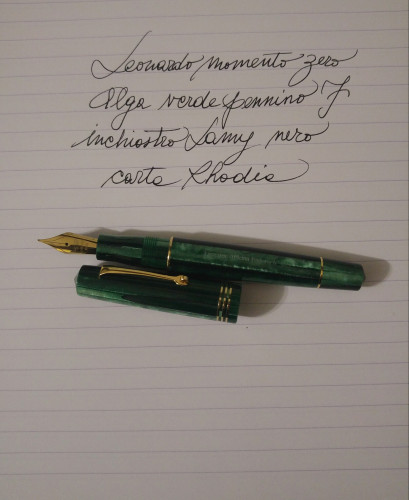 Leonardo momento zero
Alga verde pennino F
inchiostro Lamy nero
carta Rhodia